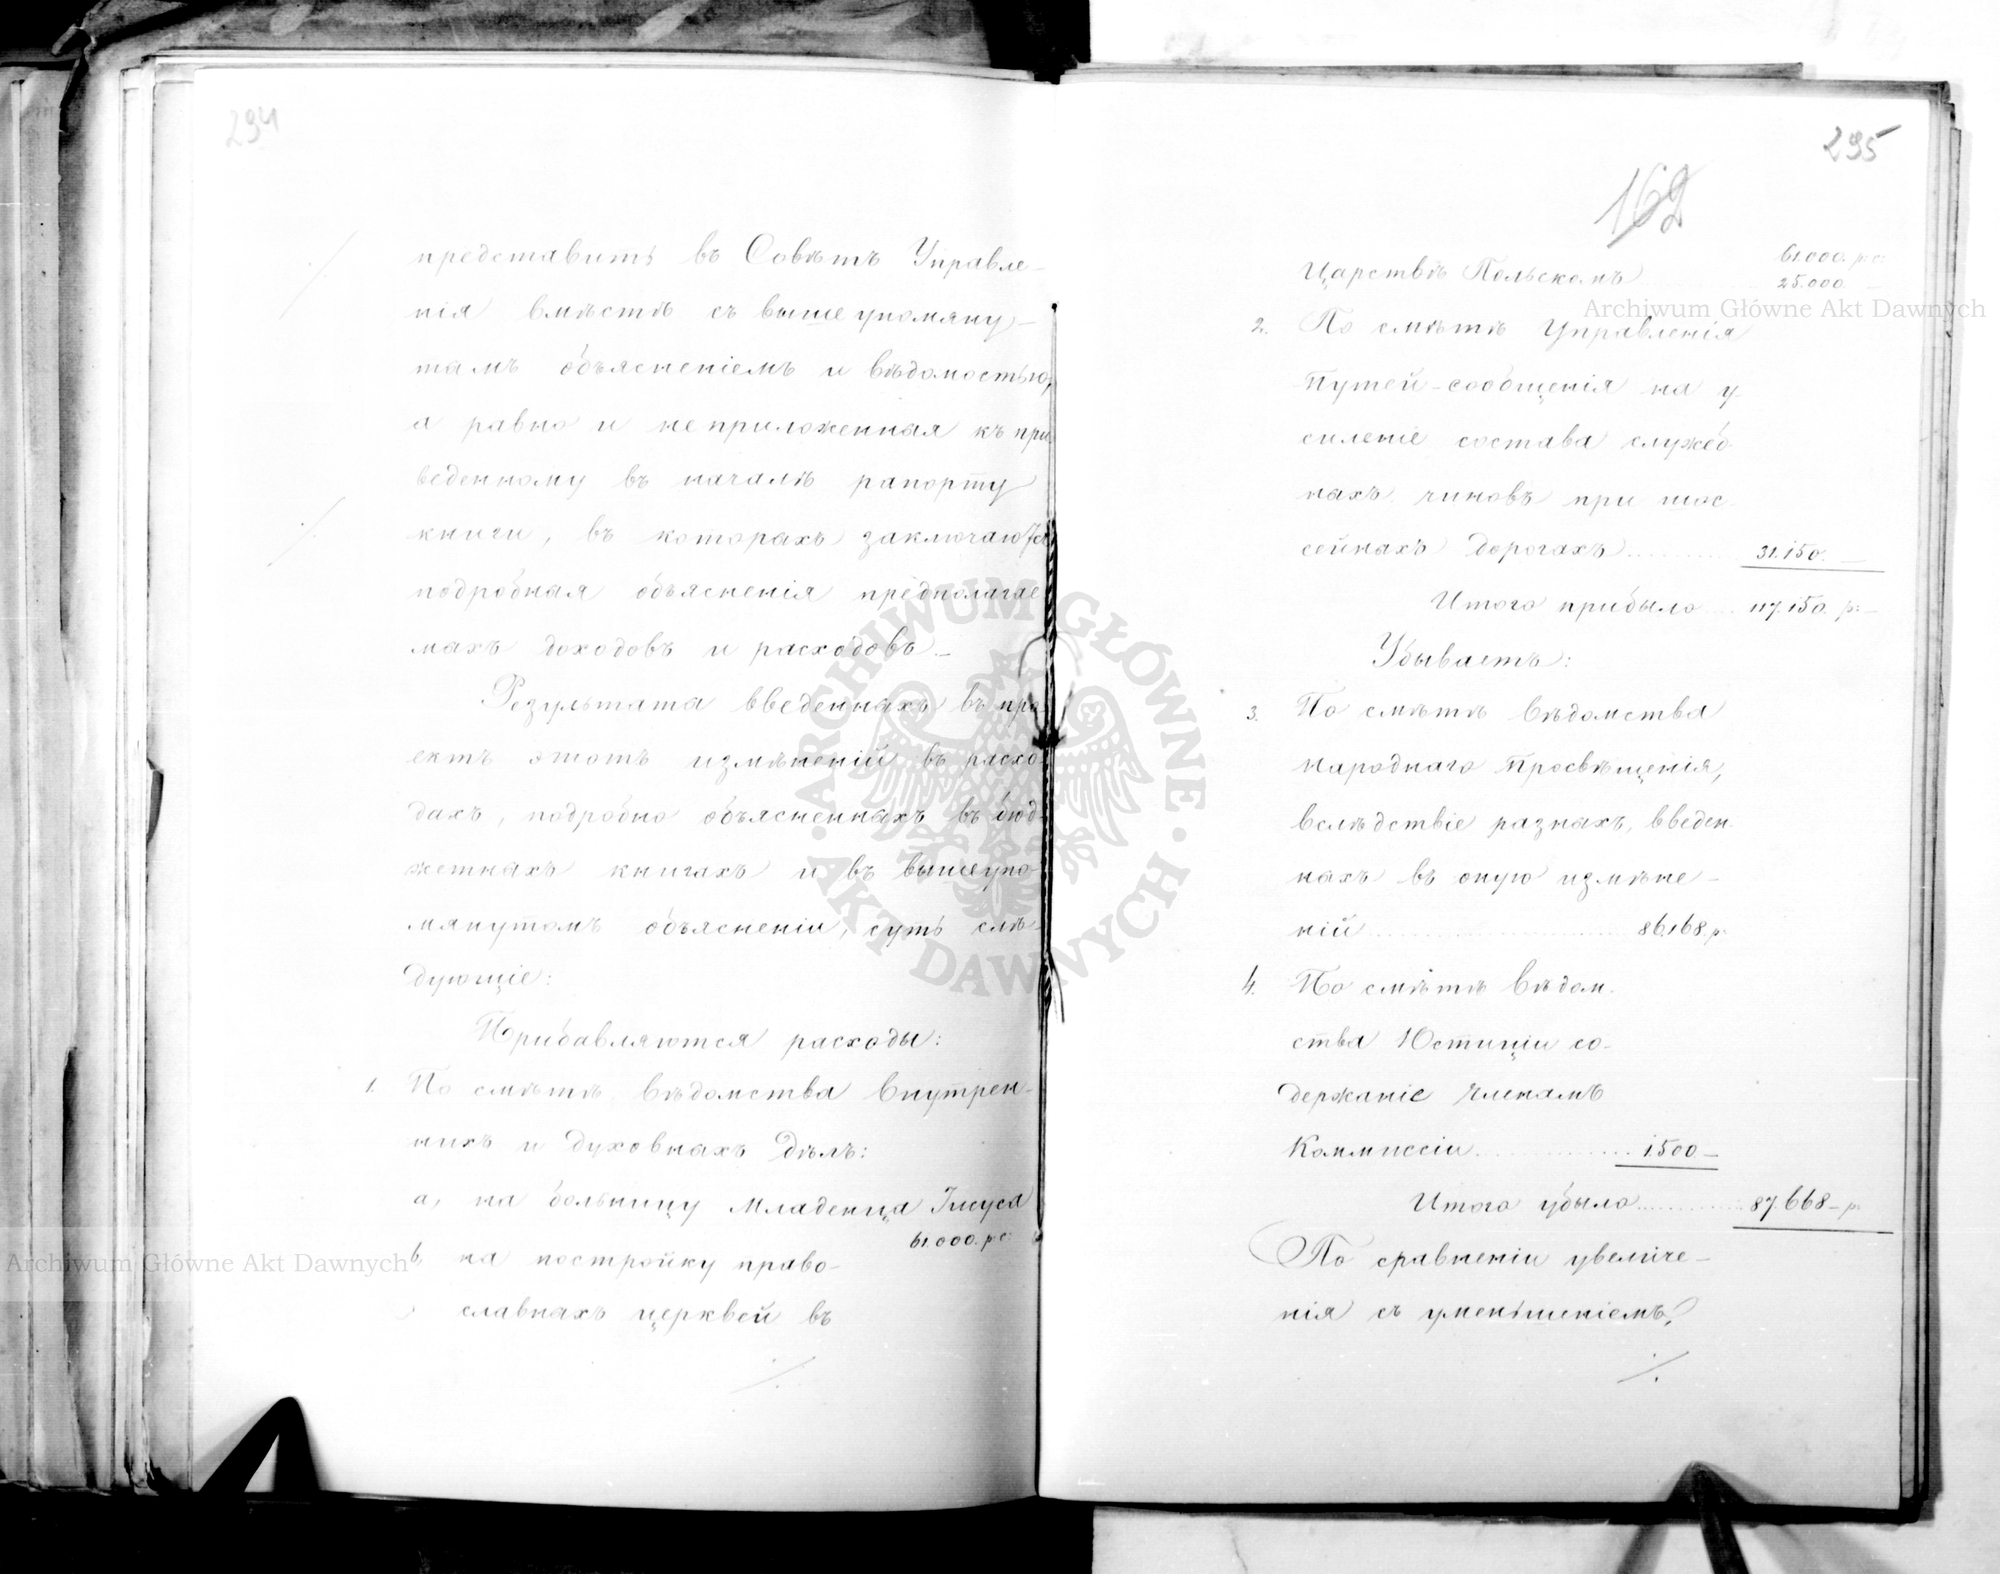 294
представить въ Совѣтъ Управле-
нія вмѣстѣ съ вышеупомяну-
тымъ объясненіемъ и вѣдомостью,
а равно и не приложенныя къ при
веденному въ началѣ рапорту
книги, въ которыхъ заключаются
подробныя объясненія предполагае
мыхъ доходовъ и расходовъ.-
Результаты введенныхъ въ про
ектъ этотъ измѣненій въ расхо
дахъ, подробно объясненныхъ въ бюд-
жетныхъ книгахъ и въ вышеупо
мянутомъ объясненіи, суть слѣ-
дующіе:
Прибавляются расходы:
1. По смѣтѣ вѣдомства внутрен-
нихъ и духовныхъ дѣлъ:
а, на больницу Младенца Іисуса
61.000. р: с:
б, на постройку право-
славныхъ церквей въ
295
162
61.000. р: с:
Царствѣ Польскомъ 25.000. —
2. По смѣтѣ Управленія
Путей-сообщенія на у-
силеніе состава служеб-
ныхъ чиновъ при шос-
сейныхъ дорогахъ ......... 31.150. —
Итого прибыло .... 117.150. р: —
Убываетъ:
3. По смѣтѣ вѣдомства
народнаго Просвѣщенія,
вслѣдствіе разныхъ, введен-
ныхъ въ оную измѣне-
ній ......... 86.168. р.
4. По смѣтѣ вѣдом-
ства Юстиціи со-
держаніе членамъ
Коммиссіи ......... 1.500 —
Итого убыло ......... 87.668 — р.
По сравненіи увеличе-
нія съ уменьшеніемъ,
Archiwum Główne Akt Dawnych
Archiwum Główne Akt Dawnych
ARCHIWUM GŁÓWNE AKT DAWNYCH